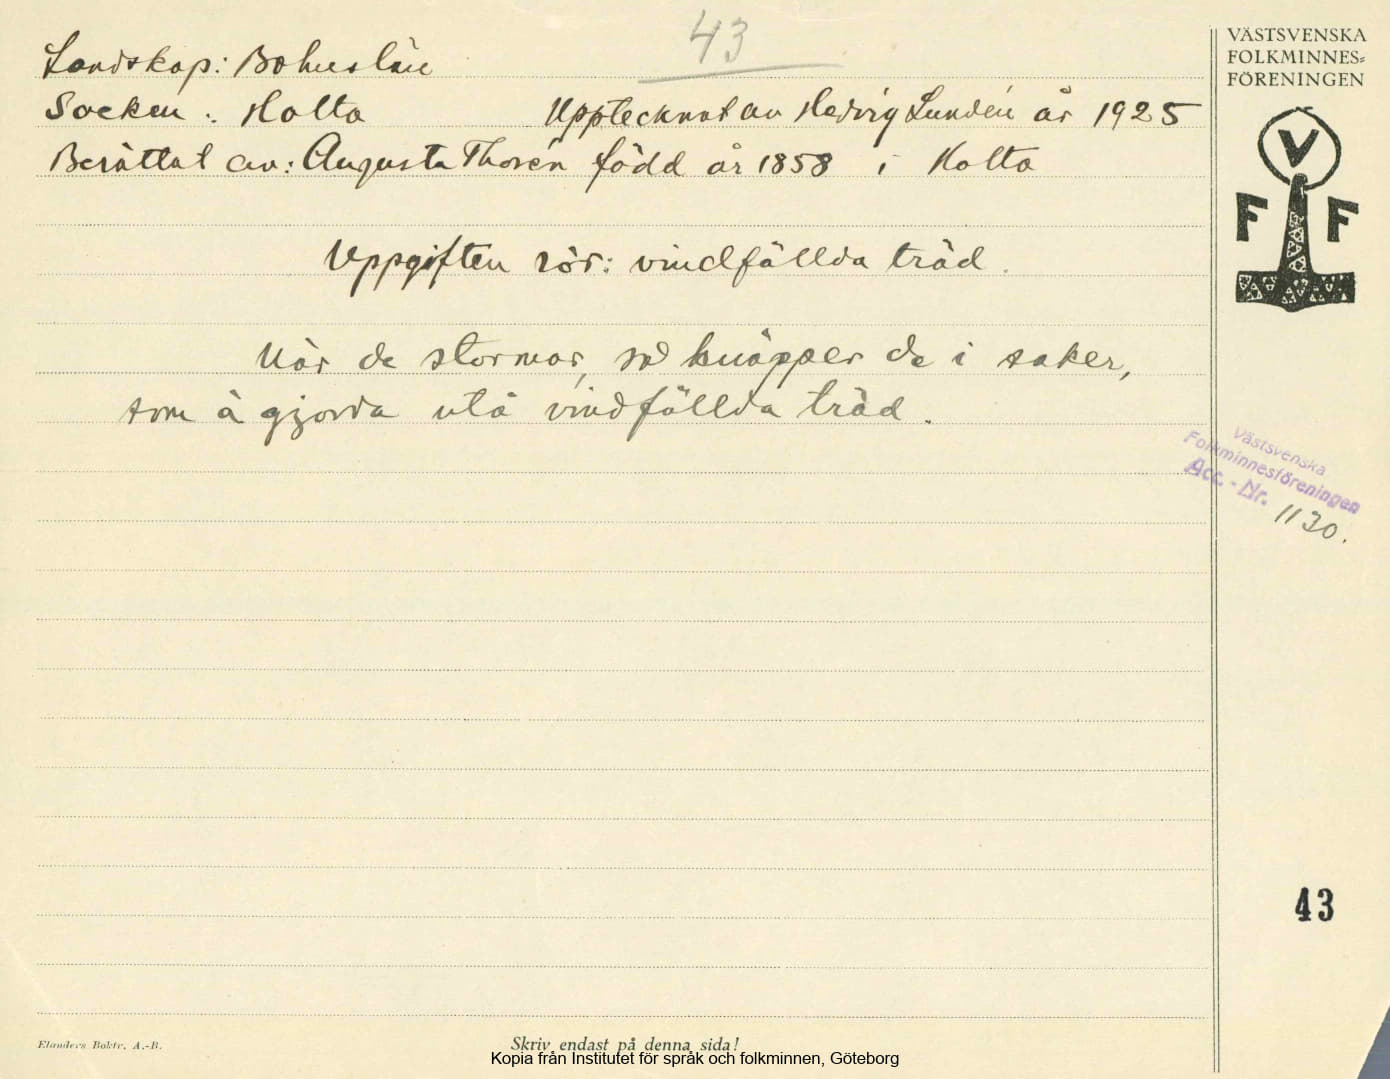 43
Landskap: Bohuslän
Socken: Holta Upptecknat av Hedvig Lundén år 1925
Berättat av: Augusta Thorén född år 1858 i Holta
Uppgiften rör: vindfällda träd.
När de stormar, så knäpper de i saker,
som ä gjorda utå vindfällda träd.
VÄSTSVENSKA
FOLKMINNES-
FÖRENINGEN
V
F F
Västsvenska
Folkminnesföreningen
Acc.-Nr. 1130.
43
Elanders Boktr. A.-B.
Skriv endast på denna sida!
Kopia från Institutet för språk och folkminnen, Göteborg